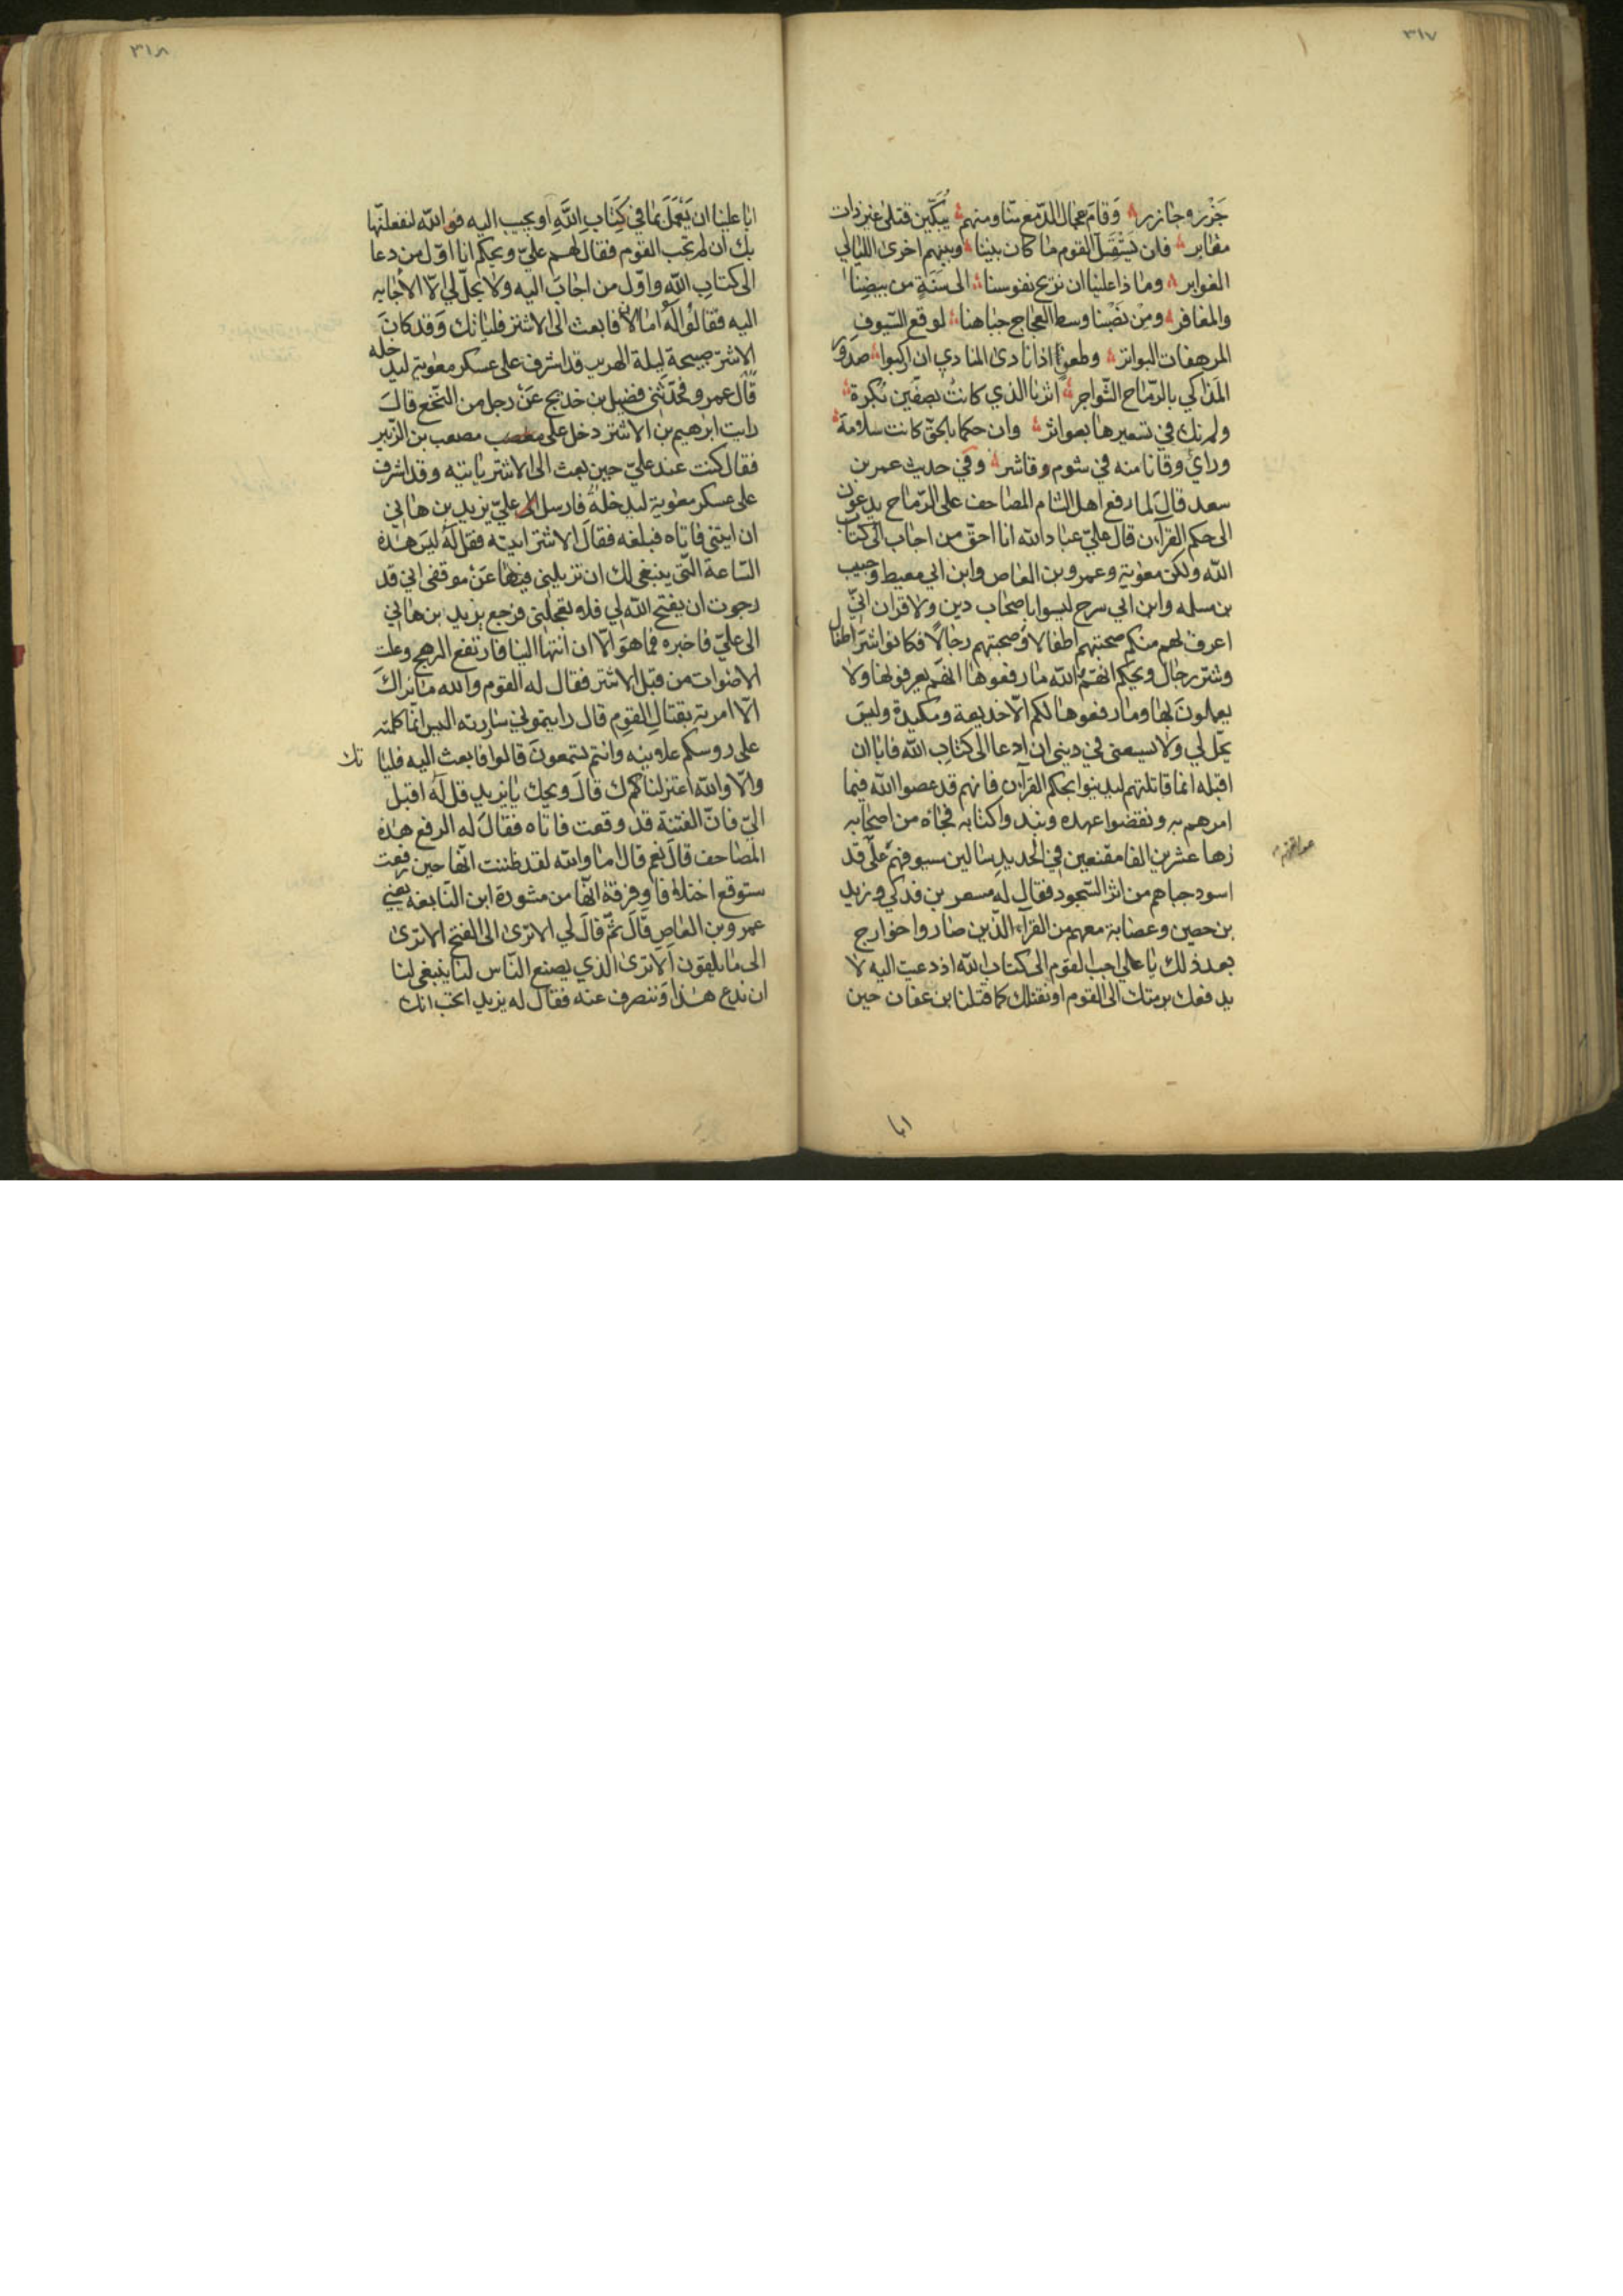 ٣١٧
جَزْر وجازر وَقام عمال الدّمع منّا ومنهم يبكّين قتلى غير ذات
مقابر فلن يَسْتَقِيلَ القوم ما كان بيننا وبينهم اخرى الليالي
الغوابر وماذا علينا ان نريح نفوسنا الى سَنَةٍ من بيضِنا
والمغافر ومِنْ نَصْبنا وسط العجاج جباهنا لوقع السّيوف
المرهفات البواتر وطعنٍ اذا نادى المنادي ان اركبوا صدور
المَذاكي بالرّماح الشّواجر اثرنا الذي كانتُ بصِفّين نُكرة
ولم نك في تسعيرها بعواثر وان حكما بالحقّ كانت سلامة
وراي وقانا منه في شوم وقاشر وفي حديث عمر بن
سعد قال لما رفع اهل الشام المصاحف على الرّماح يدعون
الى حكم القرآن قال عليّ عباد الله انا احقّ من اجاب الى كتاب
الله ولكن معوية وعمرو بن العاص وابن ابي معيط وحبيب
بن مسلمه وابن ابي سرح ليسوا باصحاب دين ولا قرآن انّي
اعرف بهم منكم صحبتهم اطفالا وصحبتهم رجالاً فكانوا شرّ اطفال
وشرّ رجال ويحكم انّهم والله ما رفعوها انّهم يعرفونها ولا
يعملونَ بها وما رفعوها لكم الّا خديعة ومكيدة وليس
يحّل لي ولا يسعنى في ديني ان ادعا الى كتاب الله فابا ان
اقبله انما قاتلتهم ليدينوا بحكم القرآن فانهم قد عصوا الله فيما
امرهم به ونقضوا عهده ونبذوا كتابه فجاءه من اصحابه
زها عشرين الفا مقنعين في الحديد سالين سيوفهم على قد
اسود جباهم من اثر السّجود فقال له مسعر بن فدكي وزيد
بن حصين وعصابة معهم من القراء الّذين صاروا خوارج
بعد ذلك يا علي اجب القوم الى كتاب الله اذ دعيت اليه لا
يدفعك برمتك الى القوم او نقتلك كما قتلنا ابن عفان حين
انا
٣١٨
انا علينا ان يَعْمَلَ بما في كِتَابِ اللَّهِ او يجيب اليه فو الله لنفعلنّها
بك ان لم تجب القوم فقال لهم عليّ ويحكم انا اوّل من دعا
الى كتابِ الله واوّل من اجابَ اليه ولا يحلّ لي الّا الاجابه
اليه فقالوا لَه اما لا فابعث الى الاشتر فلياتك وَقد كانَ
الاشترّ صبيحة ليلة الهرير قد اشرف على عسكر معوية ليدخله
قال عمرو فحدّثني فضيل بن خديج عَنْ رجل من النّخع قالَ
رايت ابرهيم بن الاشتر دخل على مصعب بن الزّبير
فقال كنت عند عليّ حين بعث الى الاشتر ياتيه وقد اشرف
على عسكر معوية ليدخله فارسل اليه عليّ يزيد بن هاني
ان ايتنى فاتاه فبلغه فقالَ الاشتر ايته فقل له ليسَ هذه
السّاعة الّتي ينبغى لك ان تزيلني فيها عَنْ موقفى اني قد
رجوت ان يفتح الله لي فلا تعجلني فرجع يزيد بن هاني
الى عليّ فاخبره فما هوَ الّا ان انتها الينا فارتفع الرهج وعلت
الاصوات من قبل الاشتر فقال له القوم والله ما نراكَ
الّا امرته بقتال القوم قال رايتموني ساررته اليس انّما كلمته
على روسكم علانيه وانتم تسمعونَ قالوا فابعث اليه فلياتك
والّا والله اعتزلناكَ قال ويحك يا يزيد قل له اقبل
اليّ فانّ الفتنة قد وقعت فاتاه فقالَ له الرفع هذه
المَصاحف قالَ نعم قال اما والله لقد ظننت انّها حين رفعت
ستوقع اختلافا وفرقة انّها من مشورة ابن النّابغة يعني
عمرو بن العاصِ قال ثمّ قالَ لي الا ترى الى الفتح الا ترى
الى ما يلقون الا ترى الذي يصنع النّاس لنا ينبغى لنا
ان ندع هذا وننصرف عنه فقال له يزيد اتحبّ انك